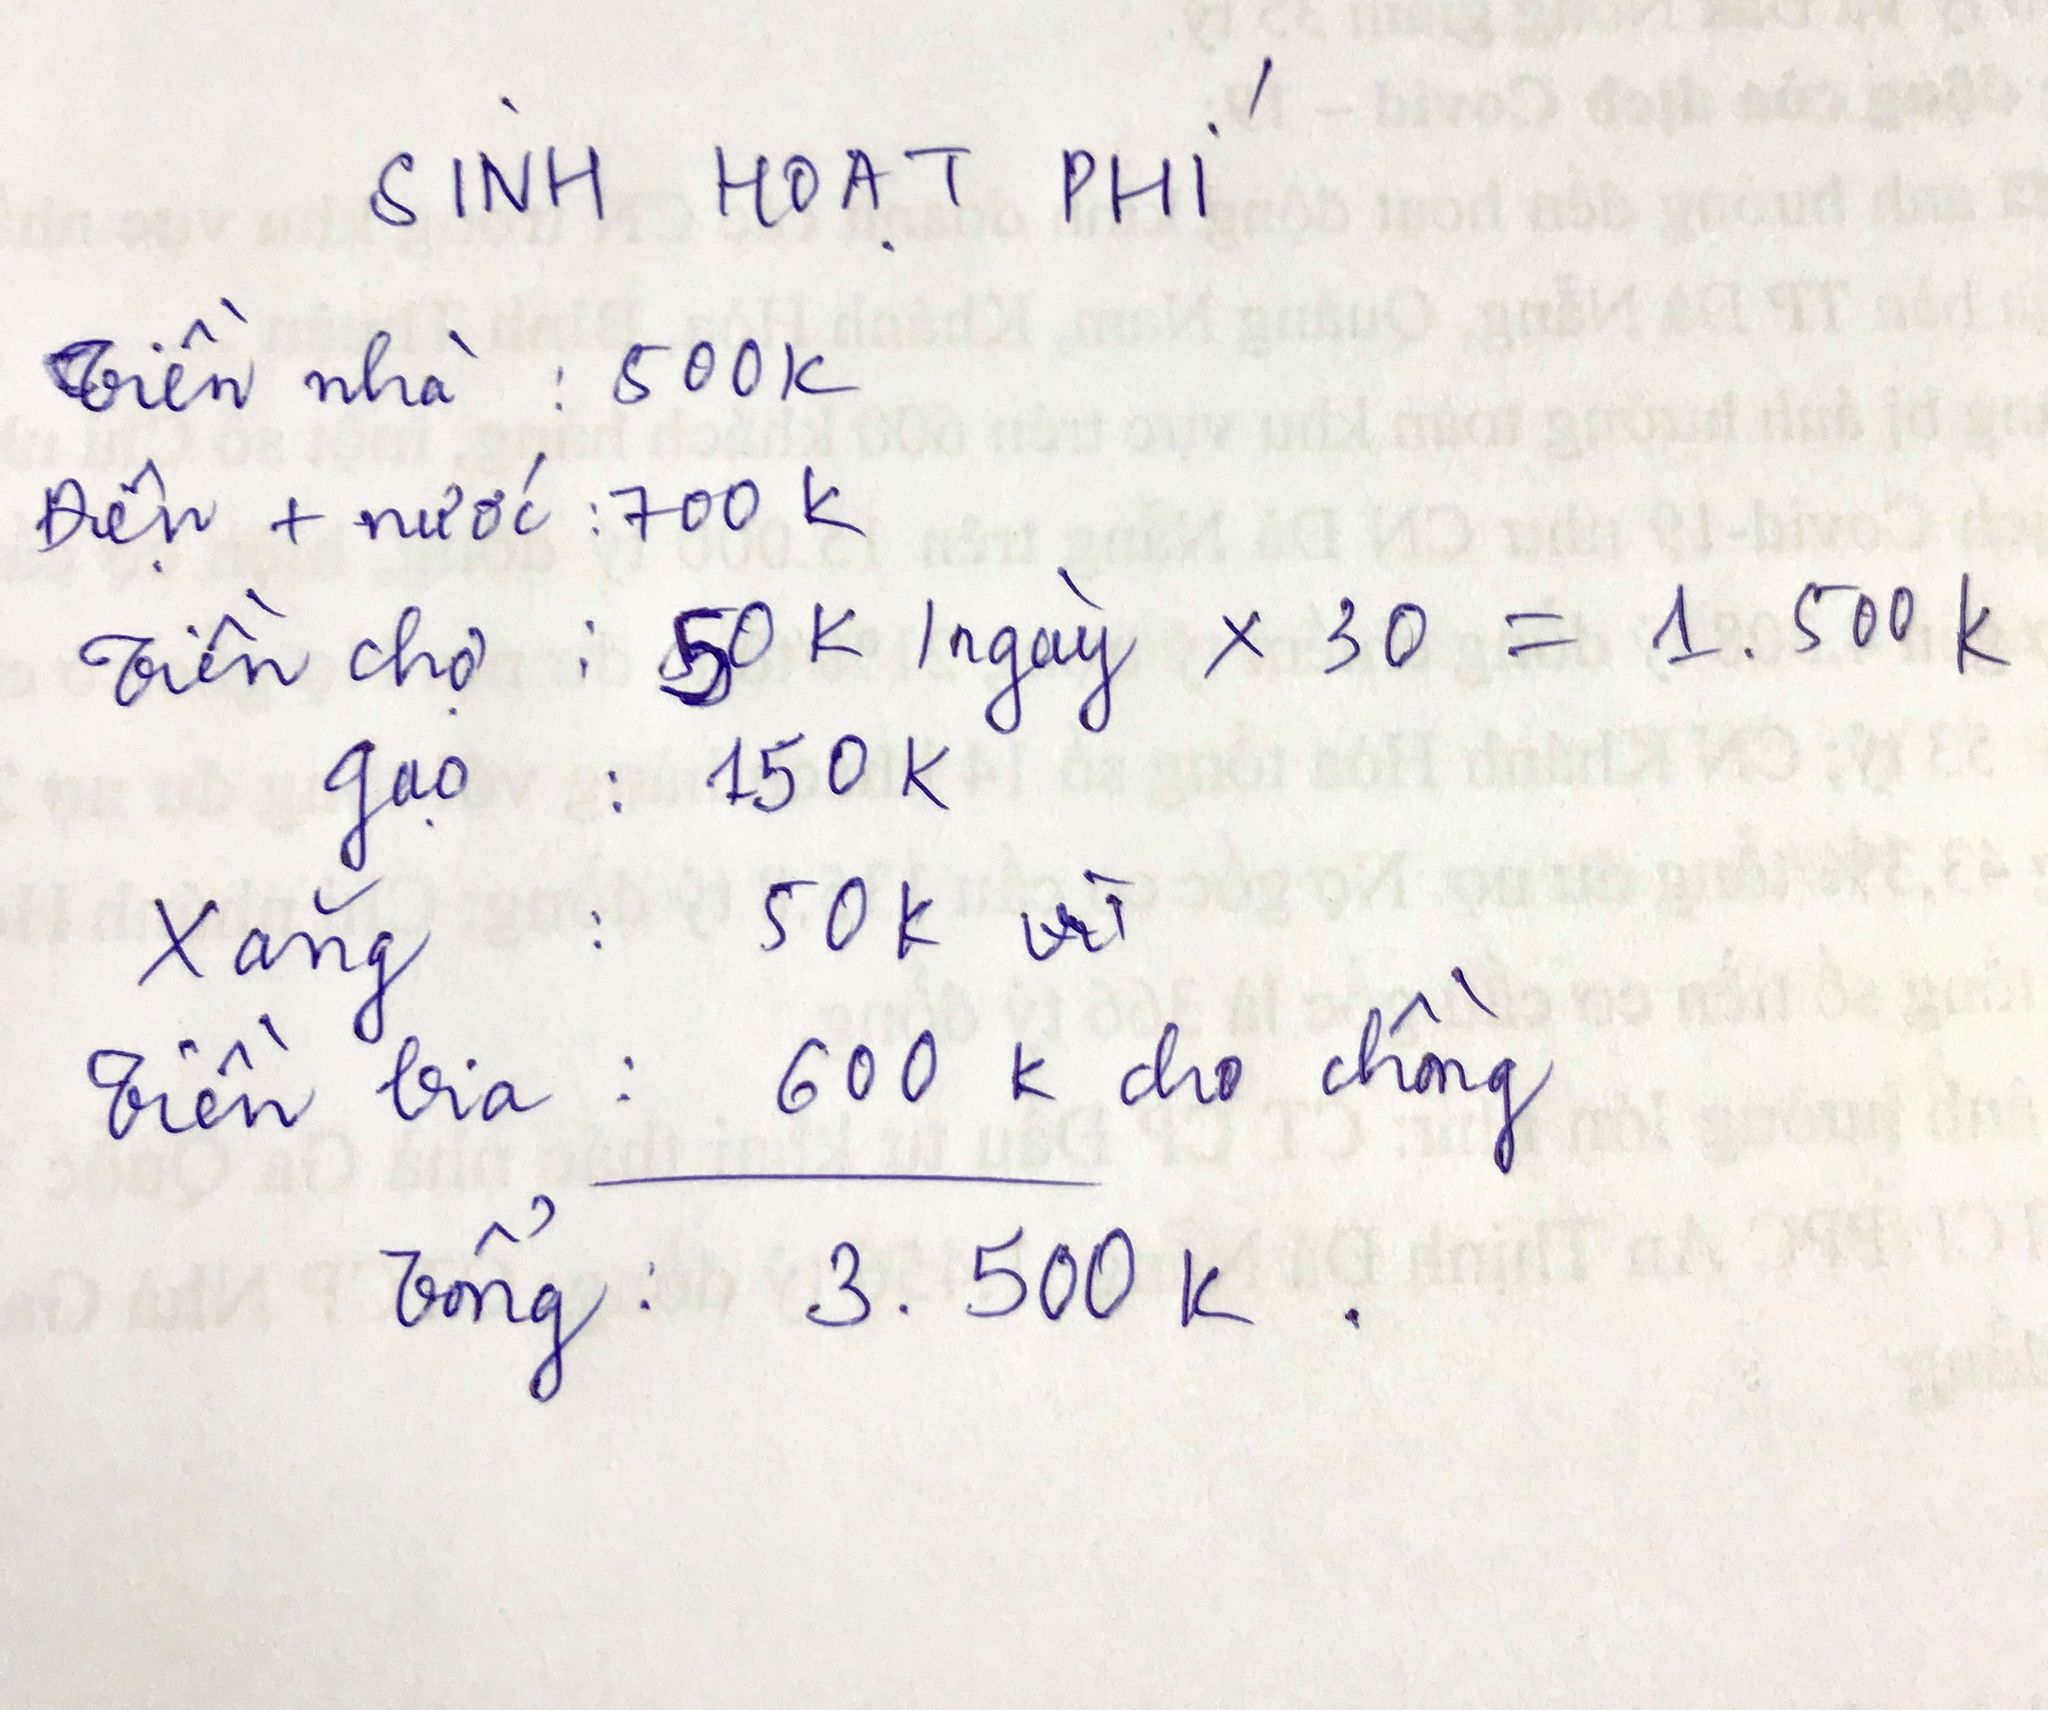 SINH HOẠT PHÍ
Tiền nhà : 500K
Điện + nước : 700K
Tiền chợ : 50K /ngày x 30 = 1.500K
gạo : 150K
Xăng : 50K vì
Tiền bia : 600K cho chồng
Tổng : 3.500K.